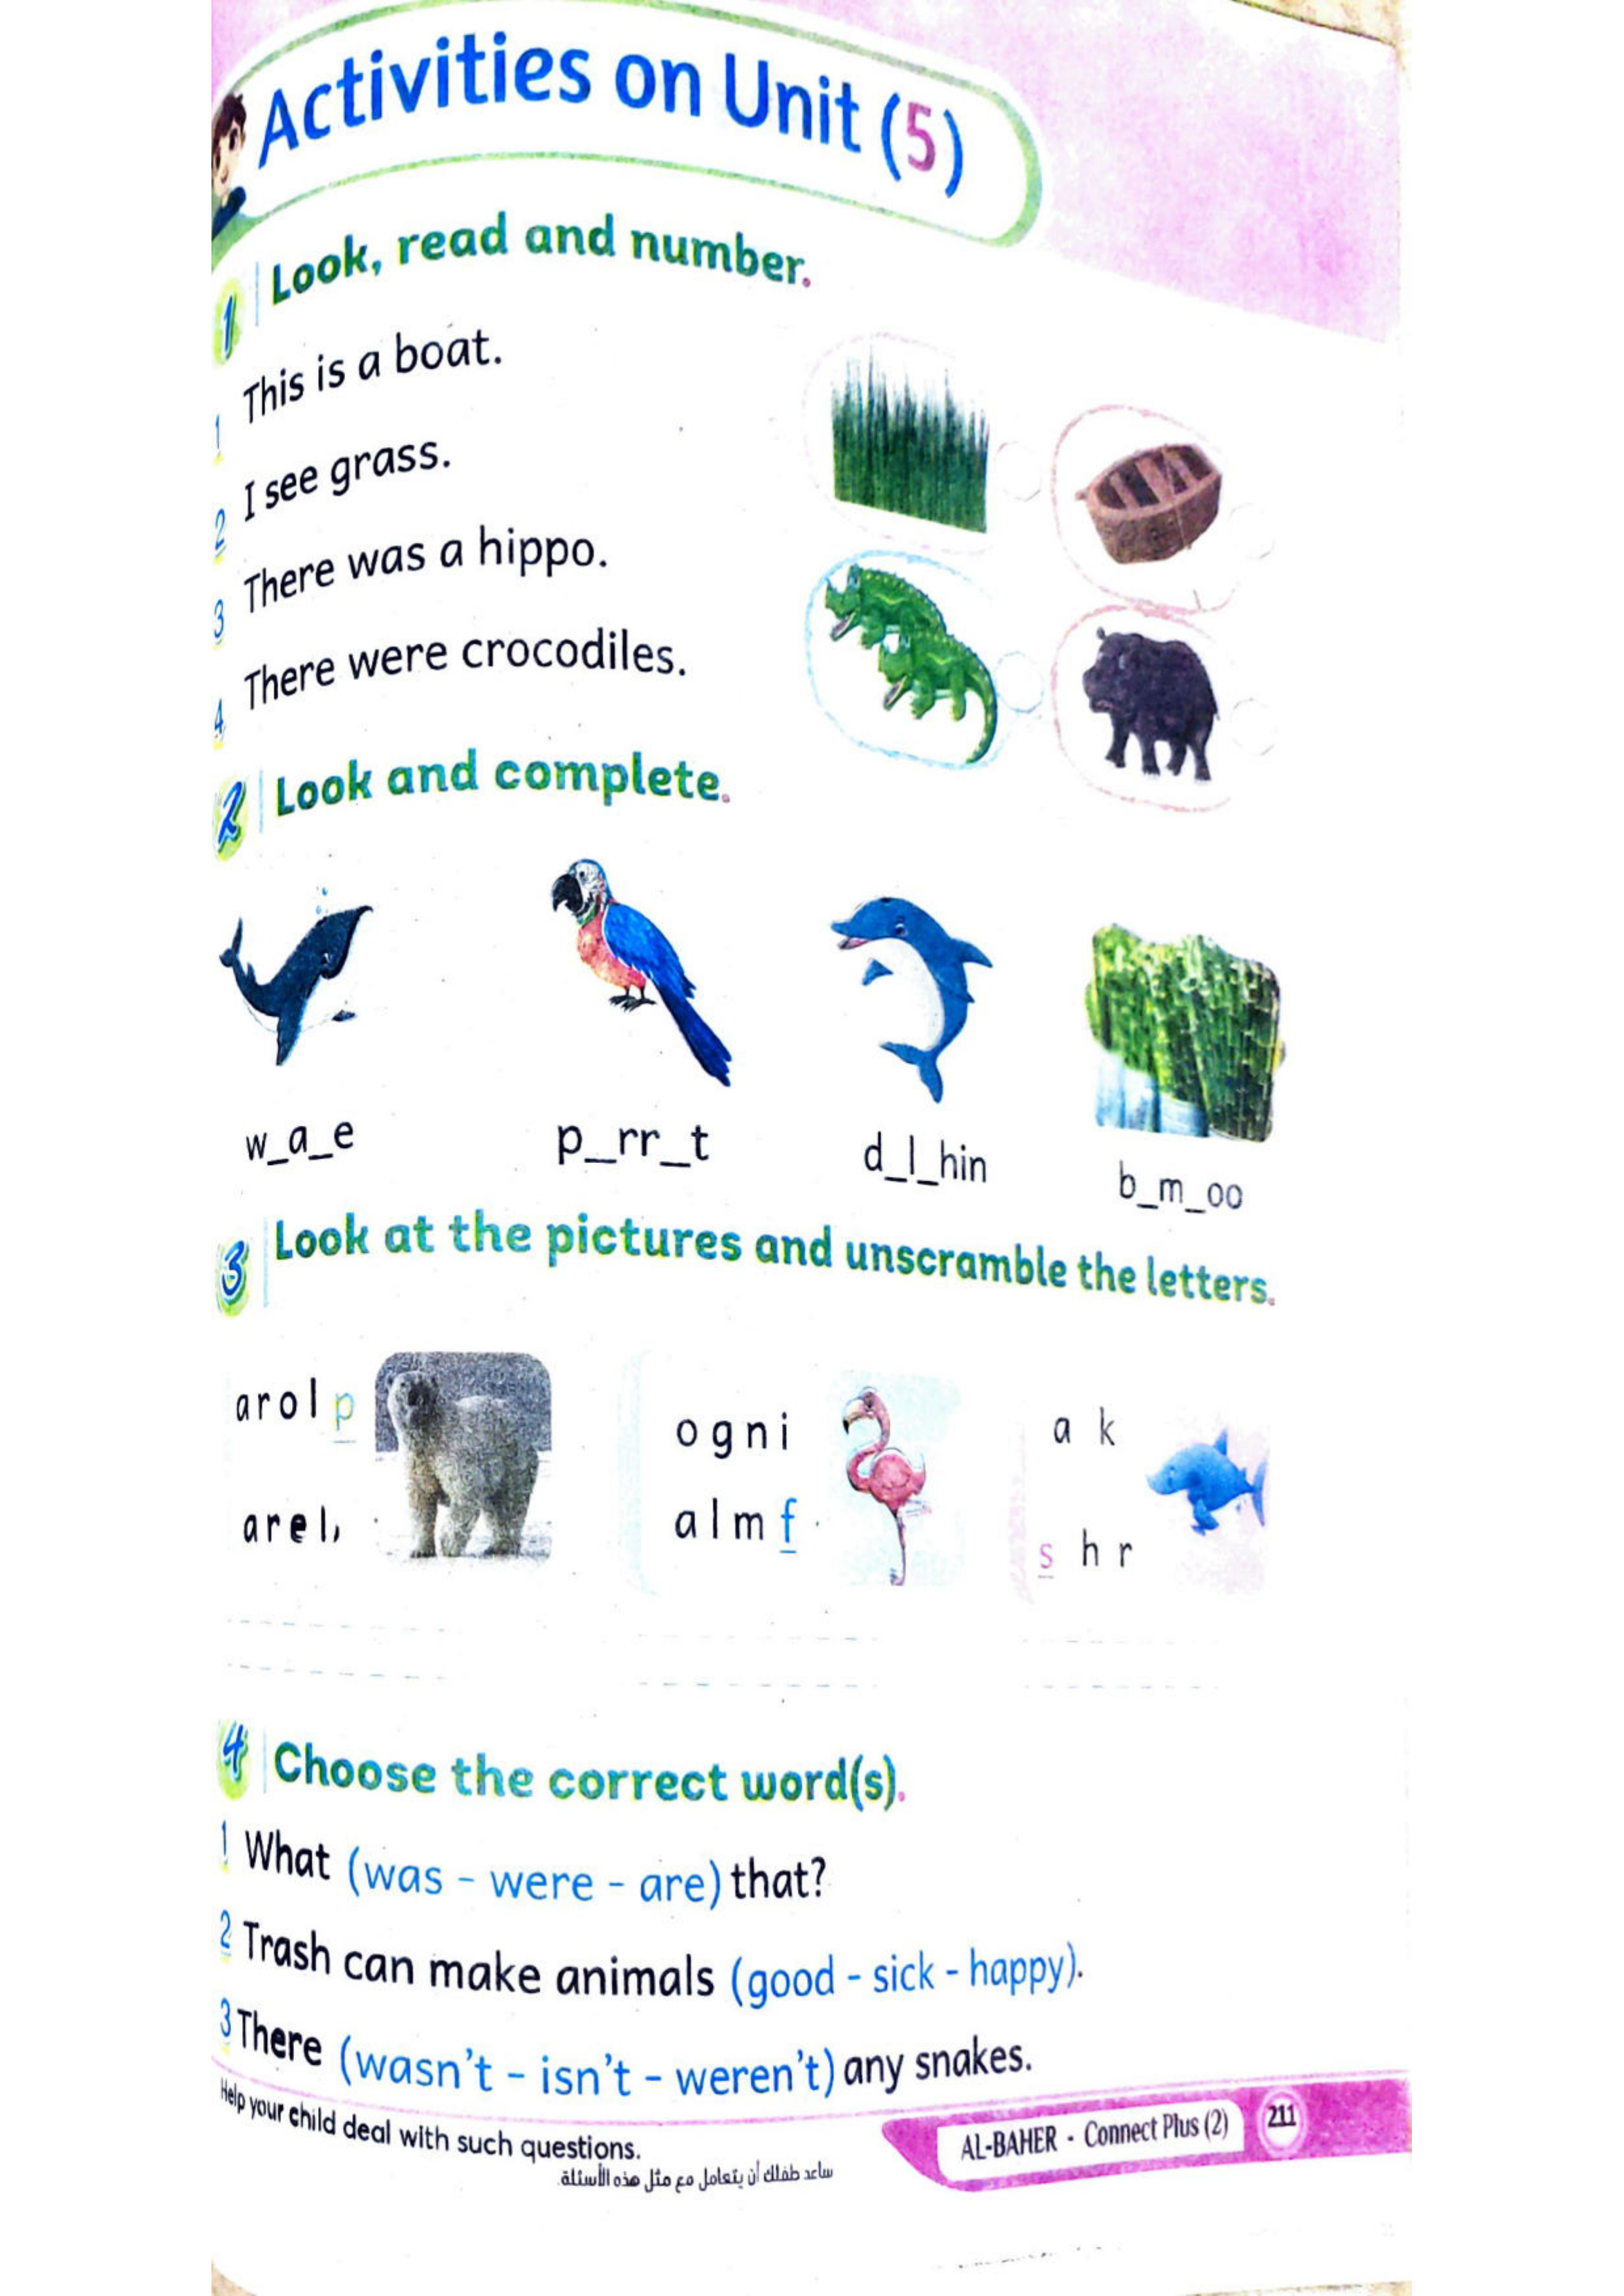 Activities on Unit (5)
1 Look, read and number.
1 This is a boat.
2 I see grass.
3 There was a hippo.
4 There were crocodiles.
2 Look and complete.
w_a_e p_rr_t d_l_hin b_m_oo
3 Look at the pictures and unscramble the letters.
a r o l p
o g n i
a k
a r e
a l m f
s h r
4 Choose the correct word(s).
1 What (was - were - are) that?
2 Trash can make animals (good - sick - happy).
3 There (wasn't - isn't - weren't) any snakes.
Help your child deal with such questions.
ساعد طفلك أن يتعامل مع مثل هذه الأسئلة.
AL-BAHER - Connect Plus (2) 211